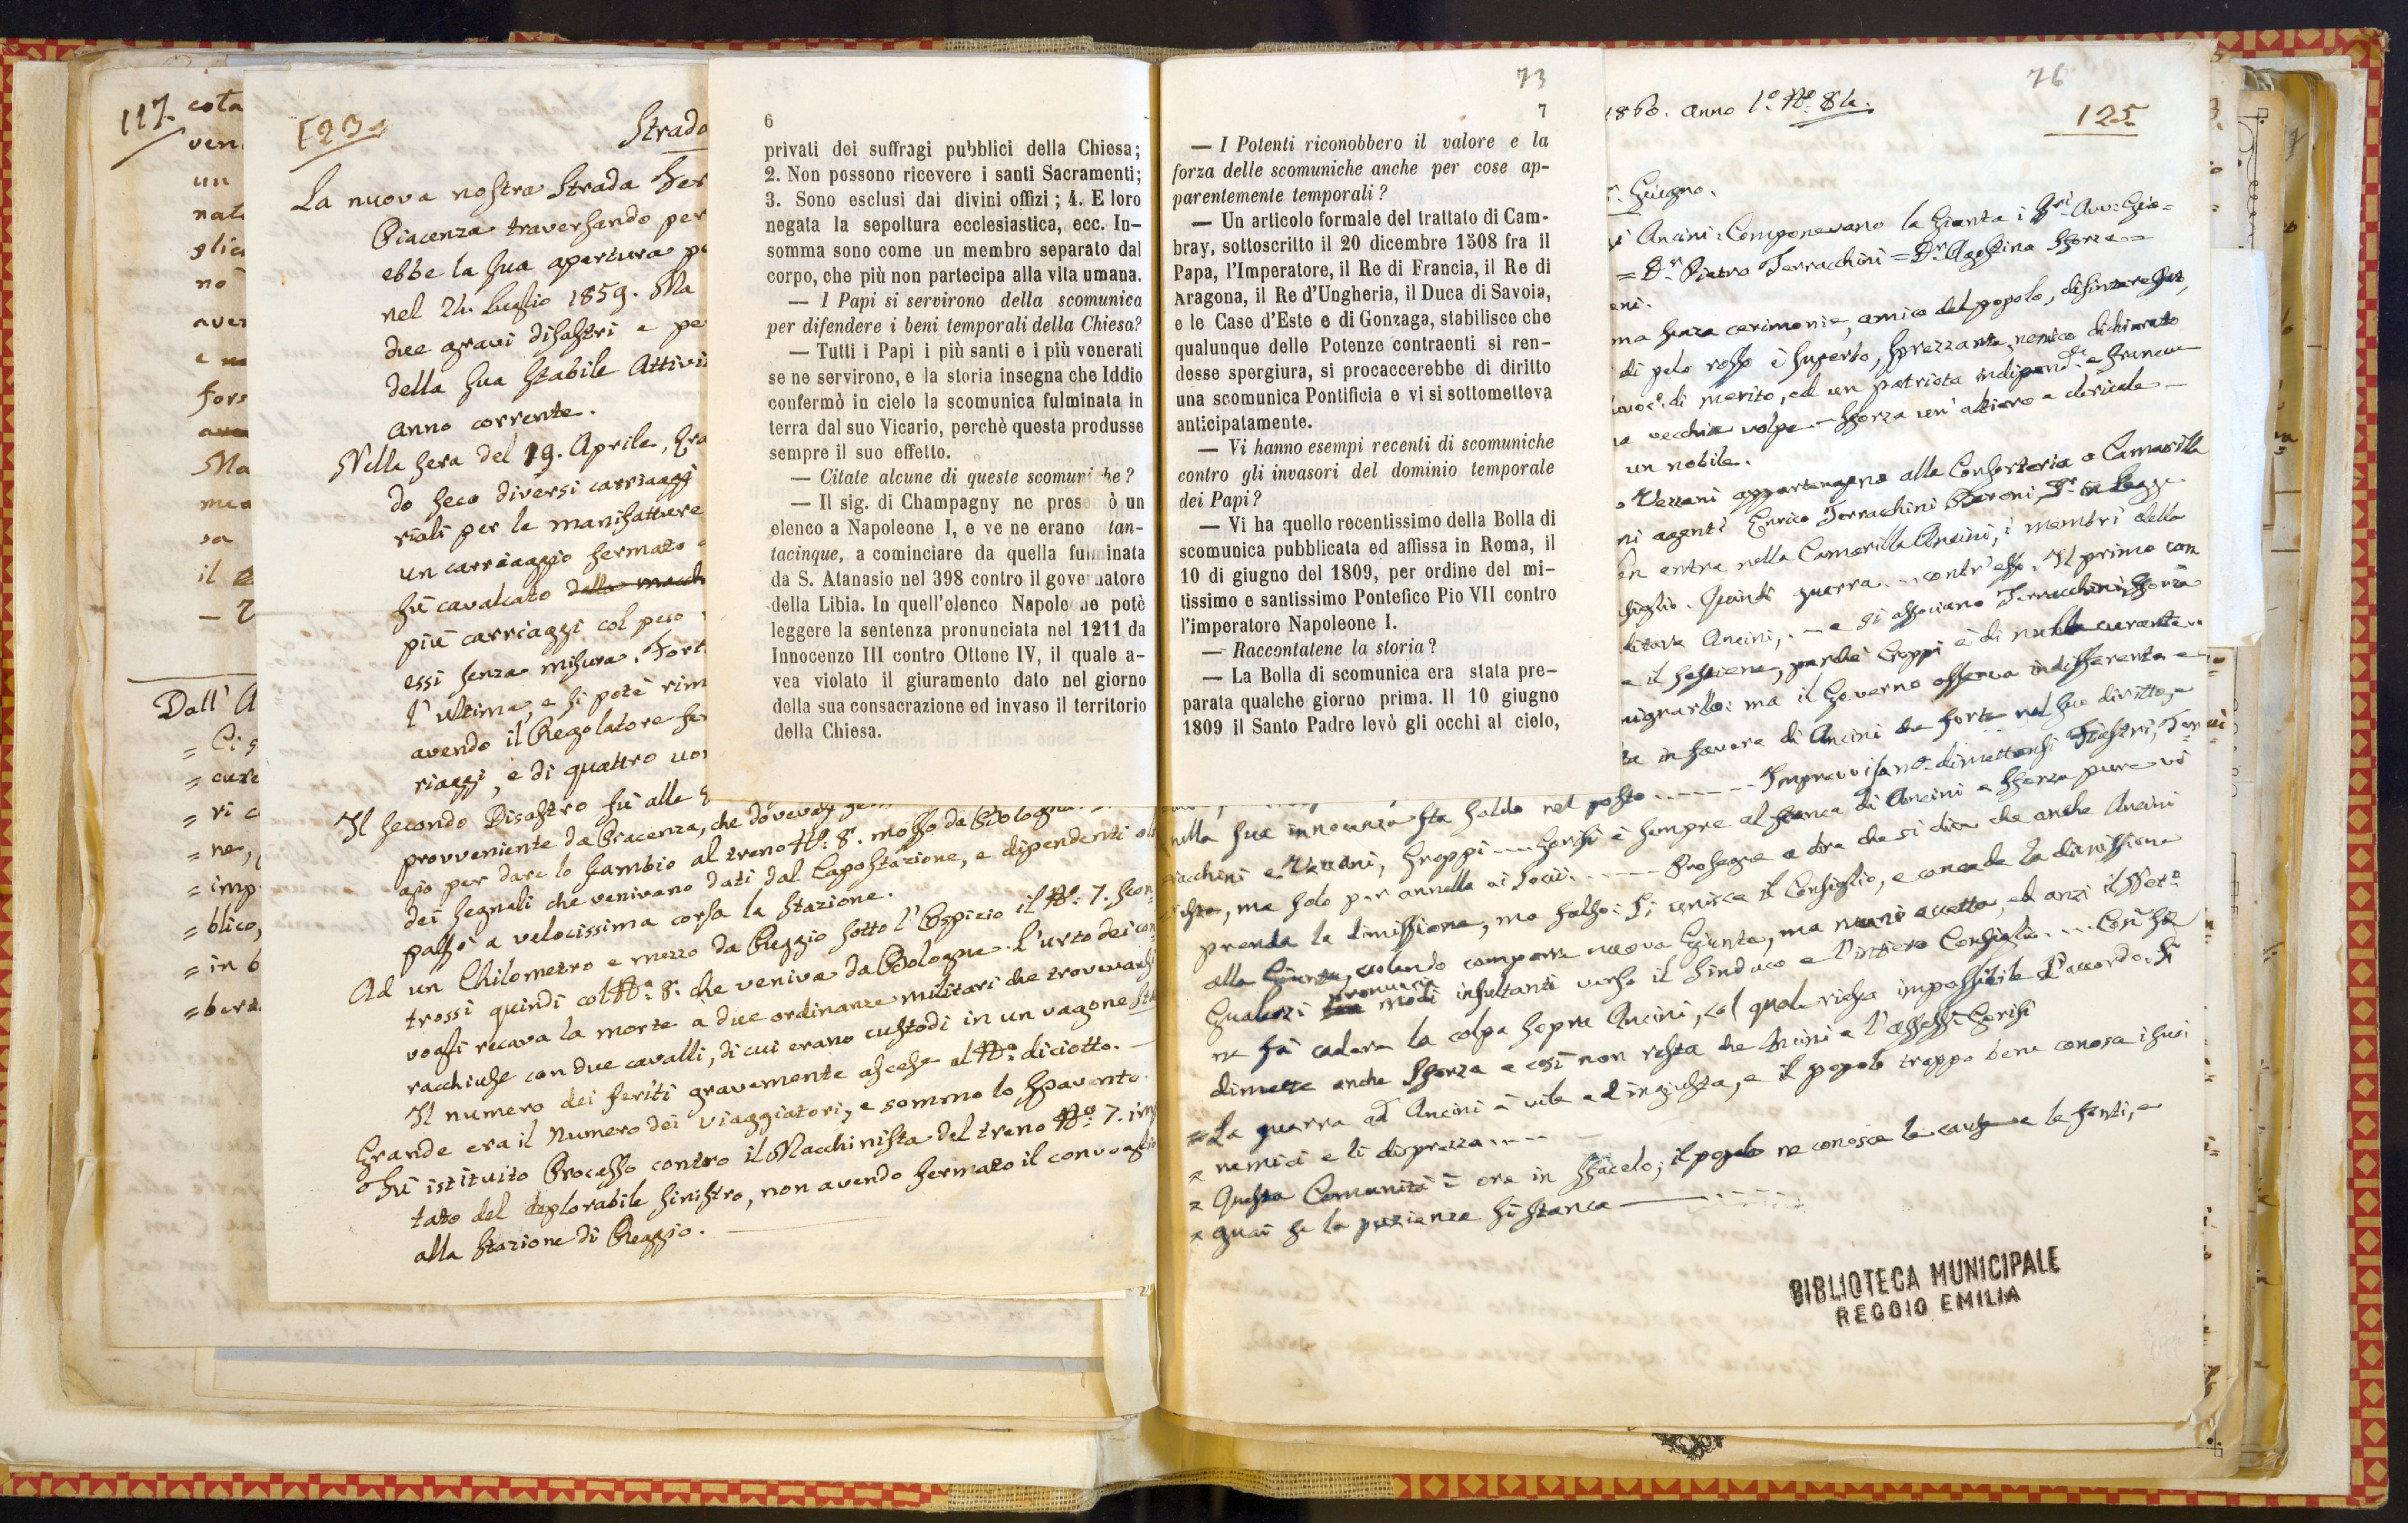 117. cota
ven
un
nat
glie
nò
aver
e
fors
Ma
sa
il
Dall' A
= Ci s
= cure
= ri c
= ne,
= imp
= blico,
= in b
= bera
123
Strada
La nuova nostra Strada Fer
Piacenza traversando per
ebbe la sua apertura p
nel 21. Luglio 1859. Ma
due gravi disastri e pe
della sua stabile Attivi
anno corrente.
Nella sera del 19. Aprile, Gra
do seco diversi carriaggi
riali per le manifatture
un carriaggio fermato
fù cavalcato dalla macch
più carriaggi col peso
essi senza misura. Fort
l'ultima, e si potè rim
avendo il Regolatore fer
riaggi, e di quattro uom
Il secondo Disastro fù alle
provveniente da Piacenza, che dovevasi
gio per dare lo scambio al treno N.º 8. mosso da Bologna
dei segnali che venivano dati dal Capostazione, e dipendenti ol
passò a velocissima corsa la stazione.
Ad un Chilometro e mezzo da Reggio sotto l'Ospizio il N.º 7. scon-
trossi quindi col N.º 8. che veniva da Bologna. L'urto dei con-
vogli recava la morte a due ordinanze militari che trovavansi
racchiuse con due cavalli, di cui erano custodi in un vagone
Il numero dei feriti gravemente ascese al N.º diciotto. —
Grande era il Numero dei viaggiatori, e sommo lo spavento.
Fù istituito Processo contro il Macchinista del treno N.º 7. im
tato del deplorabile sinistro, non avendo fermato il convoglio
alla stazione di Reggio. —
6
privati dei suffragi pubblici della Chiesa;
2. Non possono ricevere i santi Sacramenti;
3. Sono esclusi dai divini offizi; 4. E loro
negata la sepoltura ecclesiastica, ecc. In-
somma sono come un membro separato dal
corpo, che più non partecipa alla vita umana.
— I Papi si servirono della scomunica
per difendere i beni temporali della Chiesa?
— Tutti i Papi i più santi e i più venerati
se ne servirono, e la storia insegna che Iddio
confermò in cielo la scomunica fulminata in
terra dal suo Vicario, perchè questa produsse
sempre il suo effetto.
— Citate alcune di queste scomuniche?
— Il sig. di Champagny ne presentò un
elenco a Napoleone I, e ve ne erano tan-
tacinque, a cominciare da quella fulminata
da S. Atanasio nel 398 contro il governatore
della Libia. In quell'elenco Napoleone potè
leggere la sentenza pronunciata nel 1211 da
Innocenzo III contro Ottone IV, il quale a-
vea violato il giuramento dato nel giorno
della sua consacrazione ed invaso il territorio
della Chiesa.
73
7
— I Potenti riconobbero il valore e la
forza delle scomuniche anche per cose ap-
parentemente temporali?
— Un articolo formale del trattato di Cam-
bray, sottoscritto il 20 dicembre 1508 fra il
Papa, l'Imperatore, il Re di Francia, il Re di
Aragona, il Re d'Ungheria, il Duca di Savoia,
e le Case d'Este e di Gonzaga, stabilisce che
qualunque delle Potenze contraenti si ren-
desse spergiura, si procaccerebbe di diritto
una scomunica Pontificia e vi si sottometteva
anticipatamente.
— Vi hanno esempi recenti di scomuniche
contro gli invasori del dominio temporale
dei Papi?
— Vi ha quello recentissimo della Bolla di
scomunica pubblicata ed affissa in Roma, il
10 di giugno del 1809, per ordine del mi-
tissimo e santissimo Pontefice Pio VII contro
l'imperatore Napoleone I.
— Raccontatene la storia?
— La Bolla di scomunica era stata pre-
parata qualche giorno prima. Il 10 giugno
1809 il Santo Padre levò gli occhi al cielo,
76
1860. anno 1.º N.º 84.
125
Giugno.
Ancini: Componevano la Giunta i Sri. Avv: Gia=
= Dr. Pietro Terracchini = Dr. Agostino Sforza =
ma senza cerimonie, amico del popolo, disinteressat,
di pelo rosso è superbo, sprezzante, nemico dichiarato
di merito, ed un patriota indipend.te e franco
vecchia volpe — Sforza un'altiero e clericale —
un nobile.
Vezzani appartengono alla Consorteria o Camarilla
ni agenti Enrico Terracchini Baroni,
entra nella Camarilla Ancini, i membri della
siglio. Quindi guerra — contr'esso. Il primo con
Ancini, — e si associano Terracchini, Sforza
e il sostiene, perchè Groppi è di nulla curante
ma il Governo osserva indifferente e
in favore di Ancini sta forte nel suo diritto, e
nella sua innocenza sta saldo nel posto ------- Improvvisam.te dimettonsi Fiastri, Ter
racchini e Vezzani, Groppi --- Gorisi è sempre al fianco di Ancini e Sforza pure vi
resta, ma solo per annella ai Socii. ----- Prosegue a dire che si dice che anche Ancini
prenda la dimissione, ma falso: Si unisce il Consiglio, e concede la dimissione
alla Giunta, volendo comporre nuova Giunta, ma niuno accetta, ed anzi il
Gualerzi pronuncia modi insultanti verso il Sindaco e l'intiero Consiglio. --- Così si
ne fà cadere la colpa sopra Ancini, col quale riesce impossibile l'accordo. Si
dimette anche Sforza e così non resta che Ancini e l'assess.e Gorisi
= La guerra ad Ancini è vile ed ingiusta, e il popolo troppo bene conosce i suoi
= nemici e li disprezza ----
= Questa Comunità è ora in sfacelo; il popolo ne conosce le cause e le fonti, e
= guai se la pazienza si stanca —
BIBLIOTECA MUNICIPALE
REGGIO EMILIA